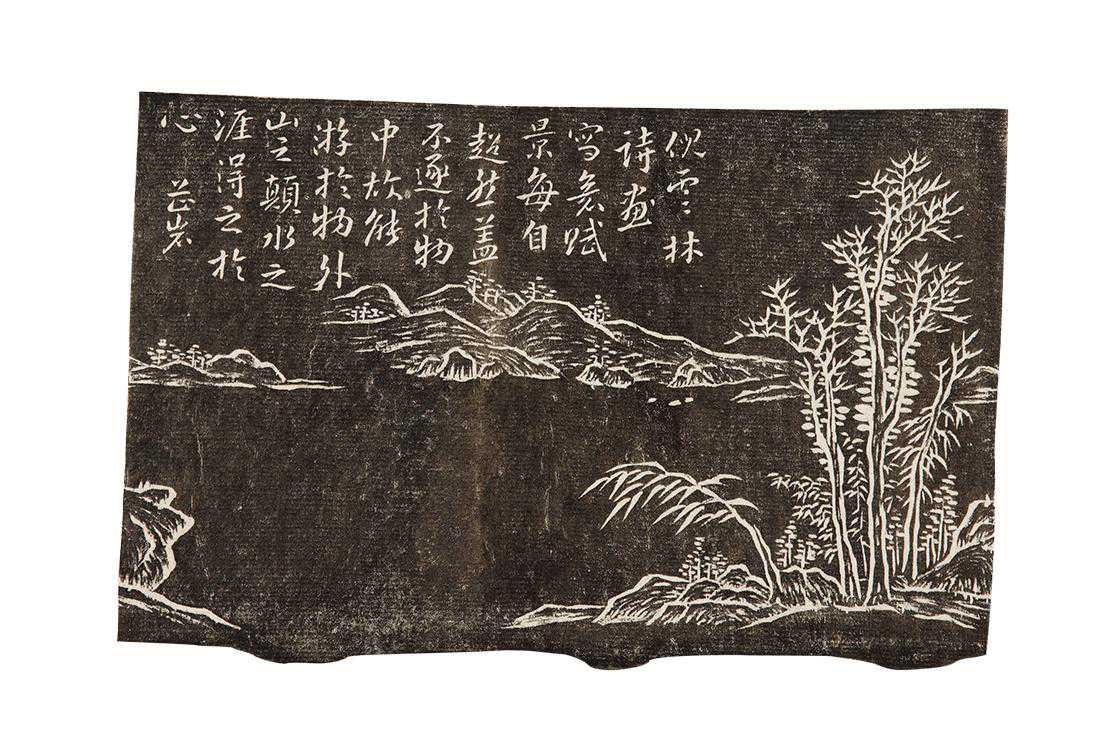 倪雲林
詩畫
寫意賦
景每自
超然蓋
不逐於物
中故能
游於物外
山之顛水之
涯得之於
心 芷岩